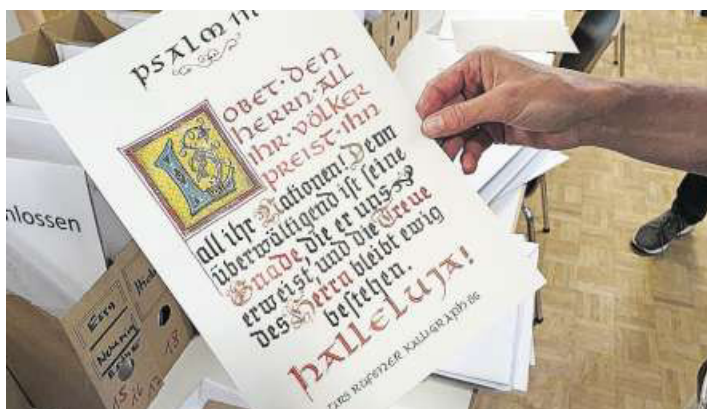 PSALM 11
LOBET·DEN
HERRN·ALL
IHR·VÖLKER
PREIST·IHN
all ihr Nationen! Denn
überwältigend ist seine
Gnade, die er uns
erweist, und die Treue
des Herrn bleibt ewig
bestehen.
HALLELUJA!
KALLIGRAPH 06
hlossen
Esra
15 16 17
18